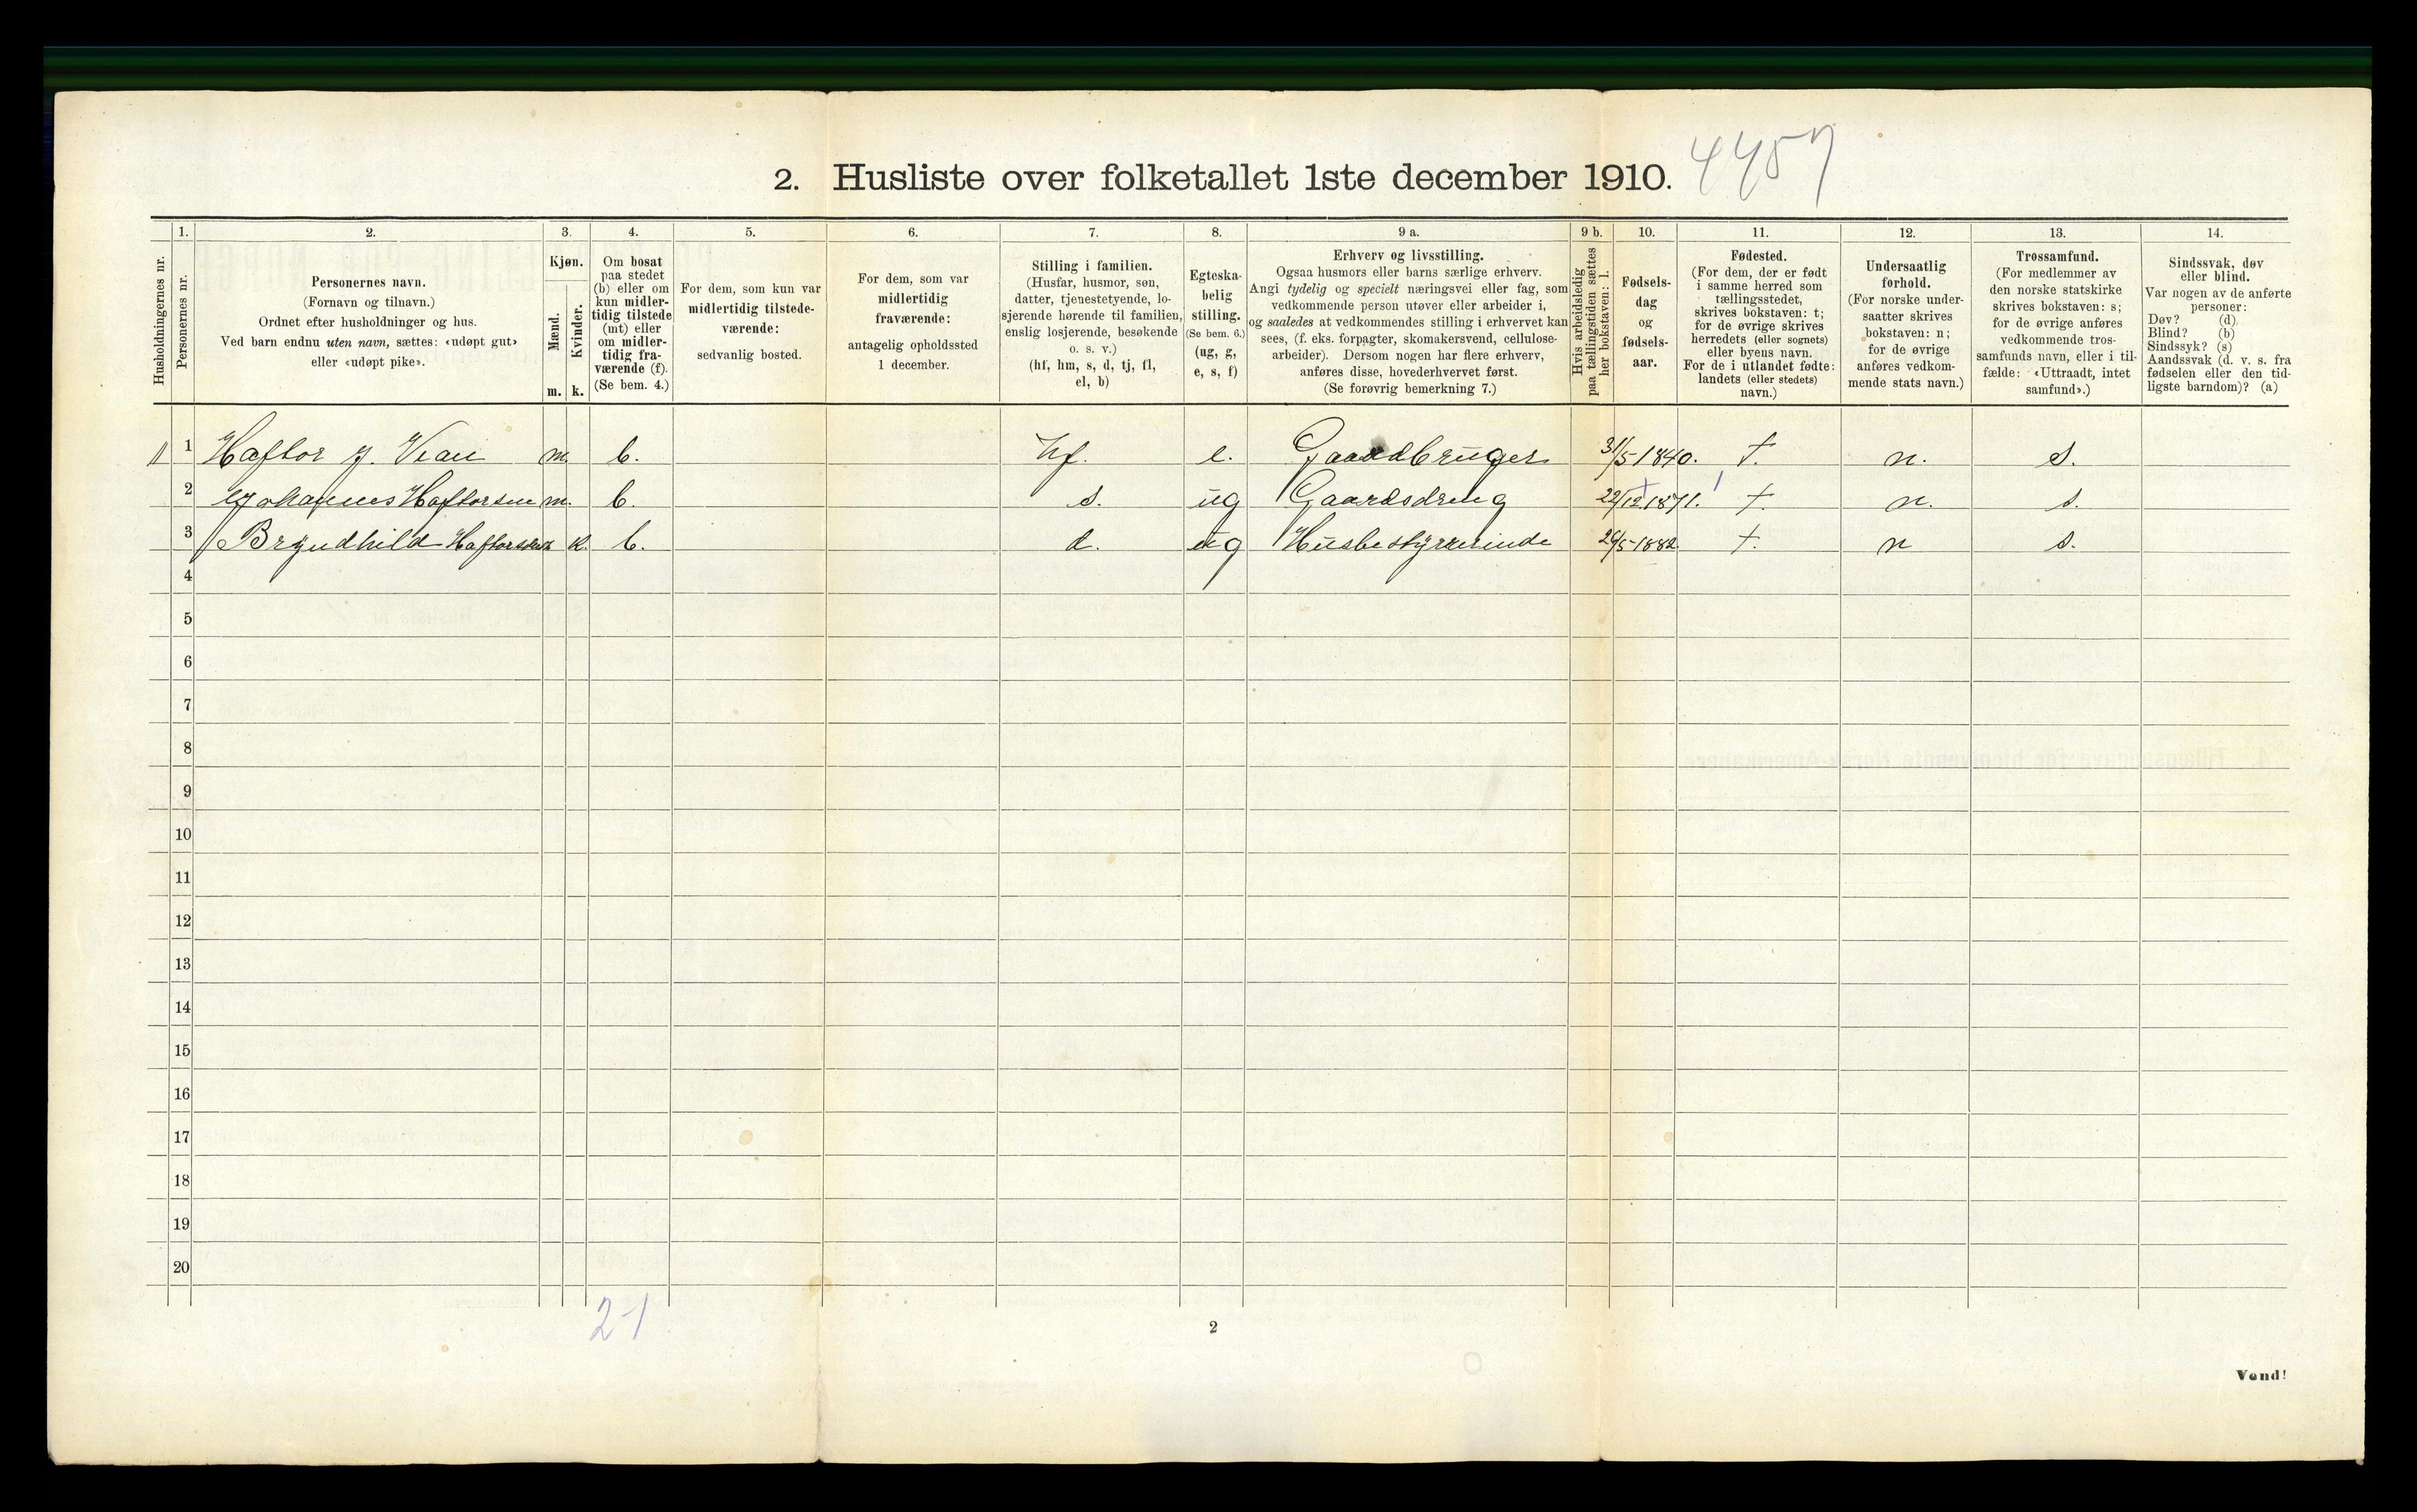 2. Husliste over folketallet 1ste december 1910. 4457
Husholdningernes nr.
1.
Personernes nr.
2.
Personernes navn.
(Fornavn og tilnavn.)
Ordnet efter husholdninger og hus.
Ved barn endnu uten navn, sættes: «udøpt gut»
eller «udøpt pike».
3.
Kjøn.
Mænd.
Kvinder.
m. k.
4.
Om bosat
paa stedet
(b) eller om
kun midler-
tidig tilstede
(mt) eller
om midler-
tidig fra-
værende (f).
(Se bem. 4.)
5.
For dem, som kun var
midlertidig tilstede-
værende:
sedvanlig bosted.
6.
For dem, som var
midlertidig
fraværende:
antagelig opholdssted
1 december.
7.
Stilling i familien.
(Husfar, husmor, søn,
datter, tjenestetyende, lo-
sjerende hørende til familien,
enslig losjerende, besøkende
o. s. v.)
(hf, hm, s, d, tj, fl,
el, b)
8.
Egteska-
belig
stilling.
(Se bem. 6.)
(ug, g,
e, s, f)
9 a.
Erhverv og livsstilling.
Ogsaa husmors eller barns særlige erhverv.
Angi tydelig og specielt næringsvei eller fag, som
vedkommende person utøver eller arbeider i,
og saaledes at vedkommendes stilling i erhvervet kan
sees, (f. eks. forpagter, skomakersvend, cellulose-
arbeider). Dersom nogen har flere erhverv,
anføres disse, hovederhvervet først.
(Se forøvrig bemerkning 7.)
9 b.
Hvis arbeidsledig
paa tællingstiden sættes
her bokstaven: l.
10.
Fødsels-
dag
og
fødsels-
aar.
11.
Fødested.
(For dem, der er født
i samme herred som
tællingsstedet,
skrives bokstaven: t;
for de øvrige skrives
herredets (eller sognets)
eller byens navn.
For de i utlandet fødte:
landets (eller stedets)
navn.)
12.
Undersaatlig
forhold.
(For norske under-
saatter skrives
bokstaven: n;
for de øvrige
anføres vedkom-
mende stats navn.)
13.
Trossamfund.
(For medlemmer av
den norske statskirke
skrives bokstaven: s;
for de øvrige anføres
vedkommende tros-
samfunds navn, eller i til-
fælde: «Uttraadt, intet
samfund».)
14.
Sindssvak, døv
eller blind.
Var nogen av de anførte
personer:
Døv? (d)
Blind? (b)
Sindssyk? (s)
Aandssvak (d. v. s. fra
fødselen eller den tid-
ligste barndom)? (a)
1 Haftor J. m. b. hf. e. Gaardbruger 31/5 1840. t. n. s.
2 Johannes Haftorsen m. b. s. ug Gaardsdreng 22/12 1871. t. n. s.
3 Bryndhild k. b. d. ug Husbestyrerinde 29/5 1882 t. n s.
4
5
6
7
8
9
10
11
12
13
14
15
16
17
18
19
20
2-1
2
Vend!